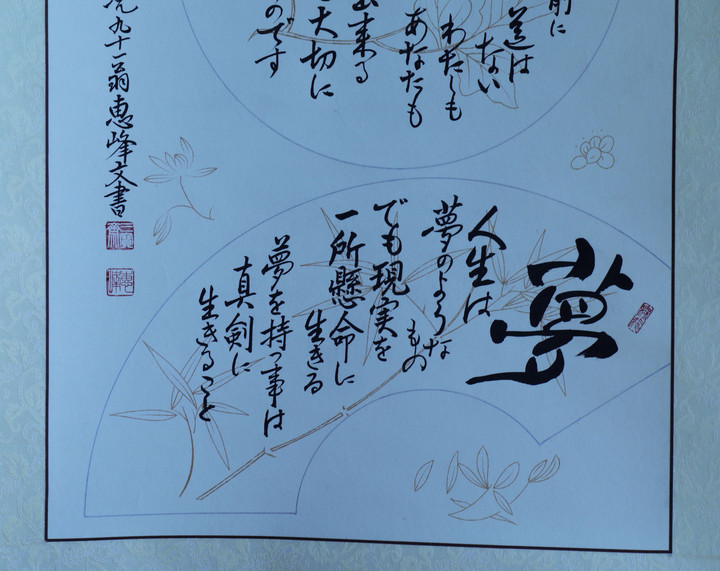 前に
道は
ない
わたしも
あなたも
来る
大切に
のです
九十一翁恵峰文書
夢
人生は
夢のような
もの
でも現実を
一所懸命に
生きる
夢を持つ事は
真剣に
生きること